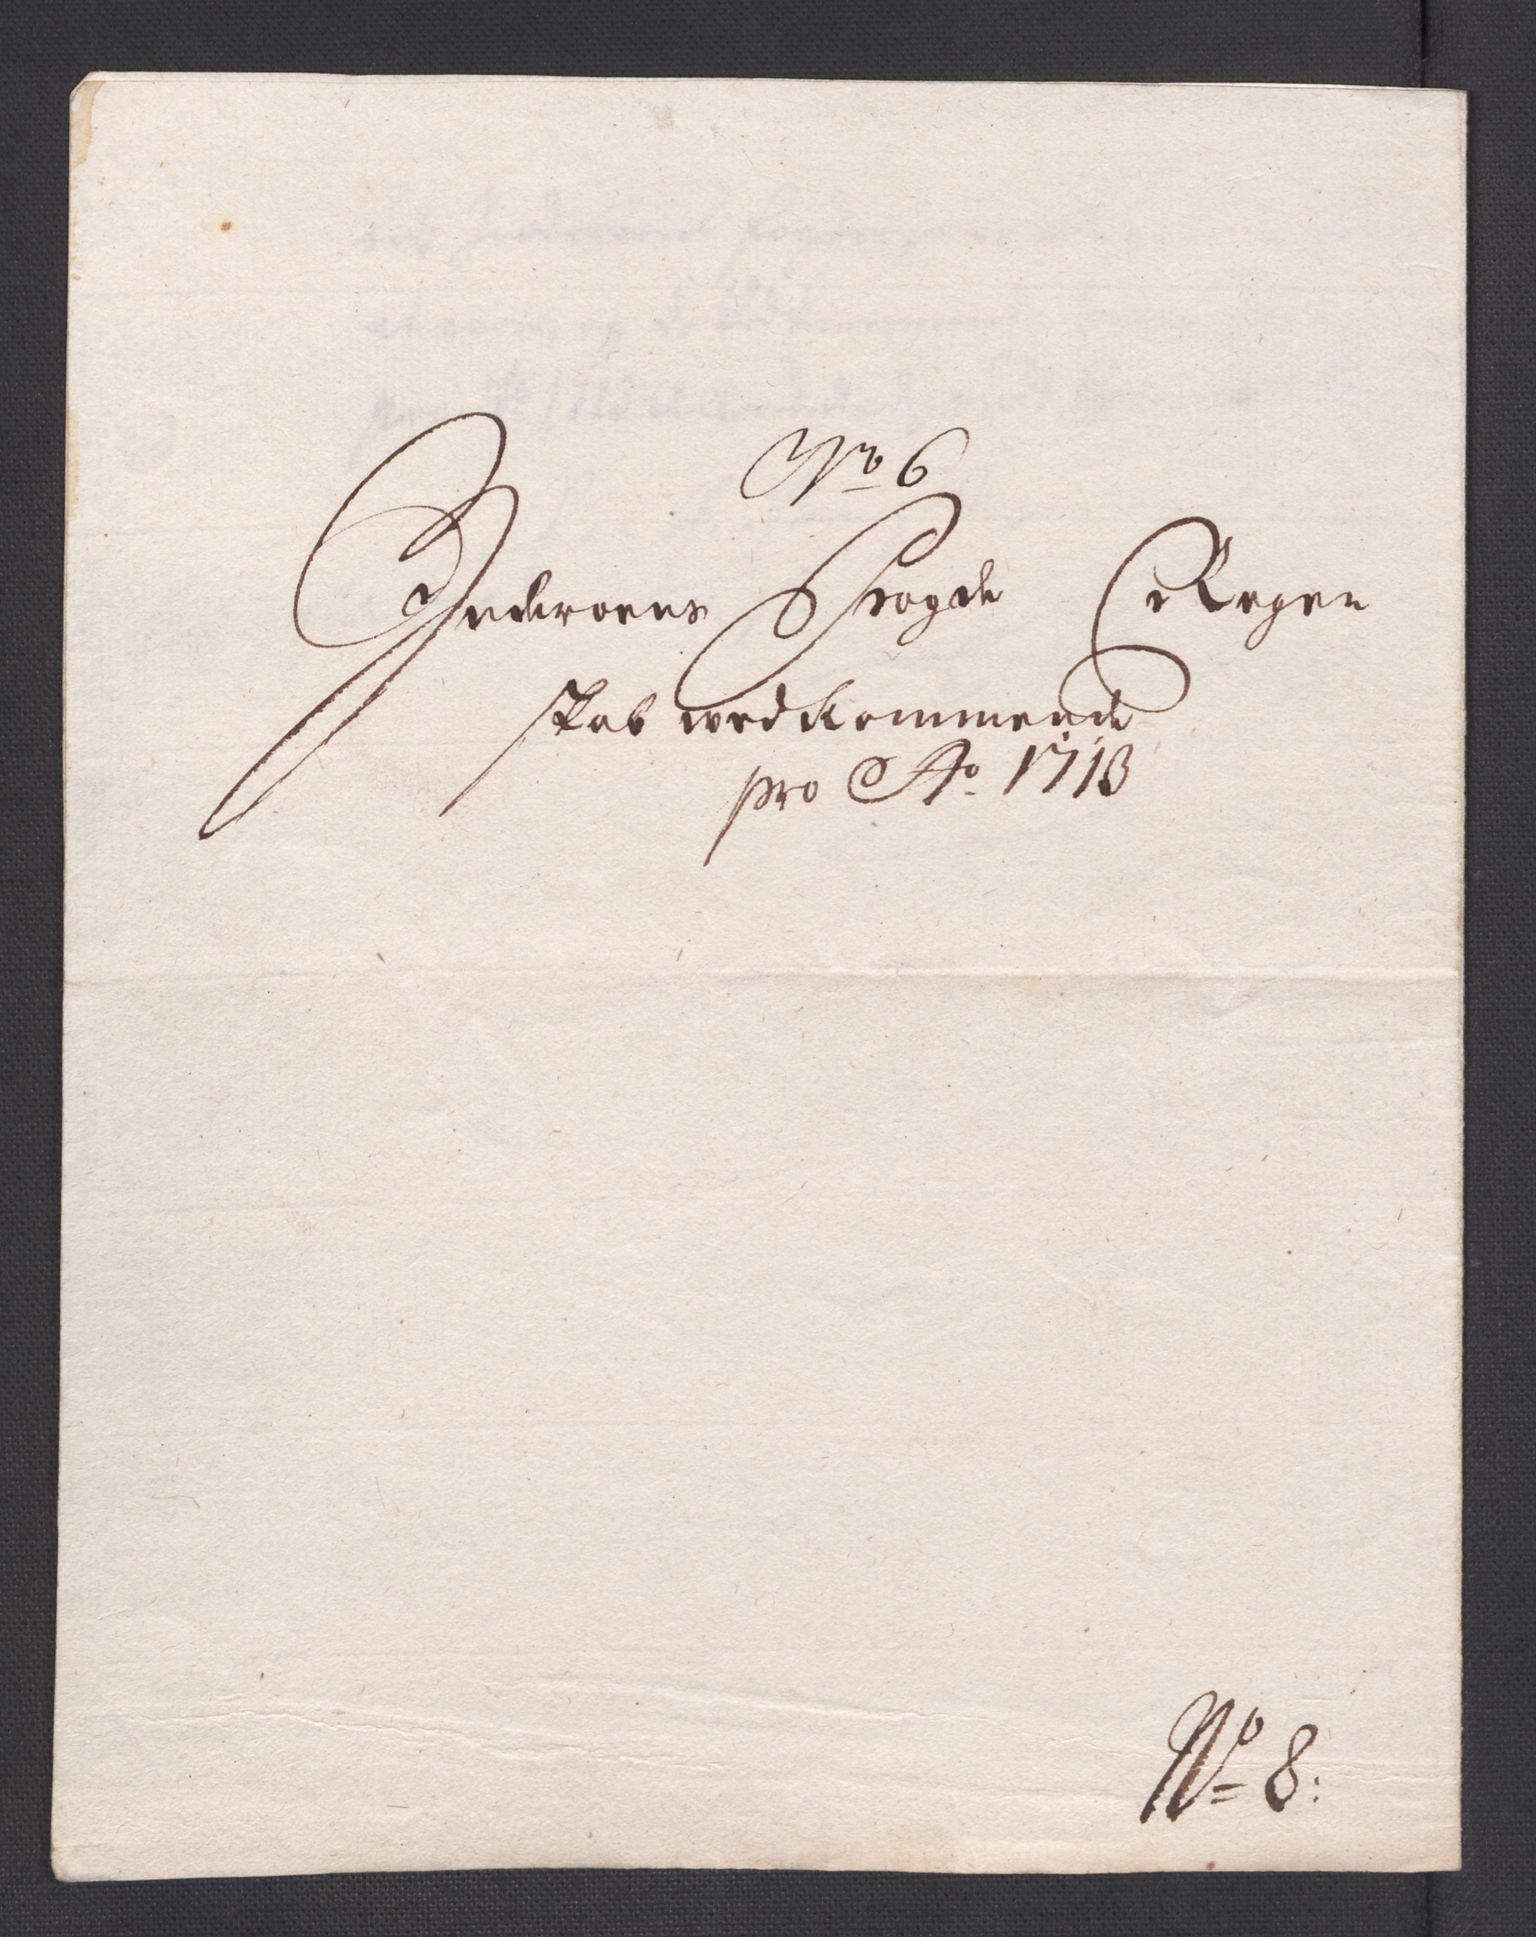 No 6
Inderoens Fogde Regen
skab wedkommende
pro Ao. 1713
No 8: